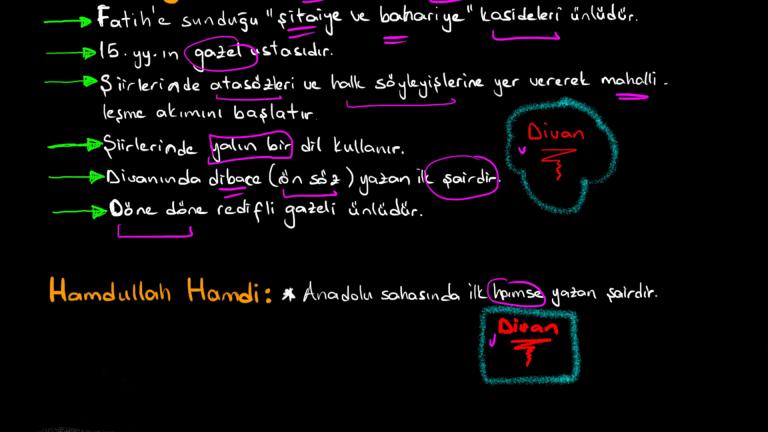 Fatih'e sunduğu "şitaiye ve bahariye" kasideleri ünlüdür.
15. yy.ın gazel ustasıdır.
Şiirlerinde atasözleri ve halk söyleyişlerine yer vererek mahalli-
leşme akımını başlatır.
Şiirlerinde yalın bir dil kullanır.
Divanında dibace (ön söz) yazan ilk şairdir.
Döne döne redifli gazeli ünlüdür.
Divan
Hamdullah Hamdi: * Anadolu sahasında ilk hamse yazan şairdir.
Divan